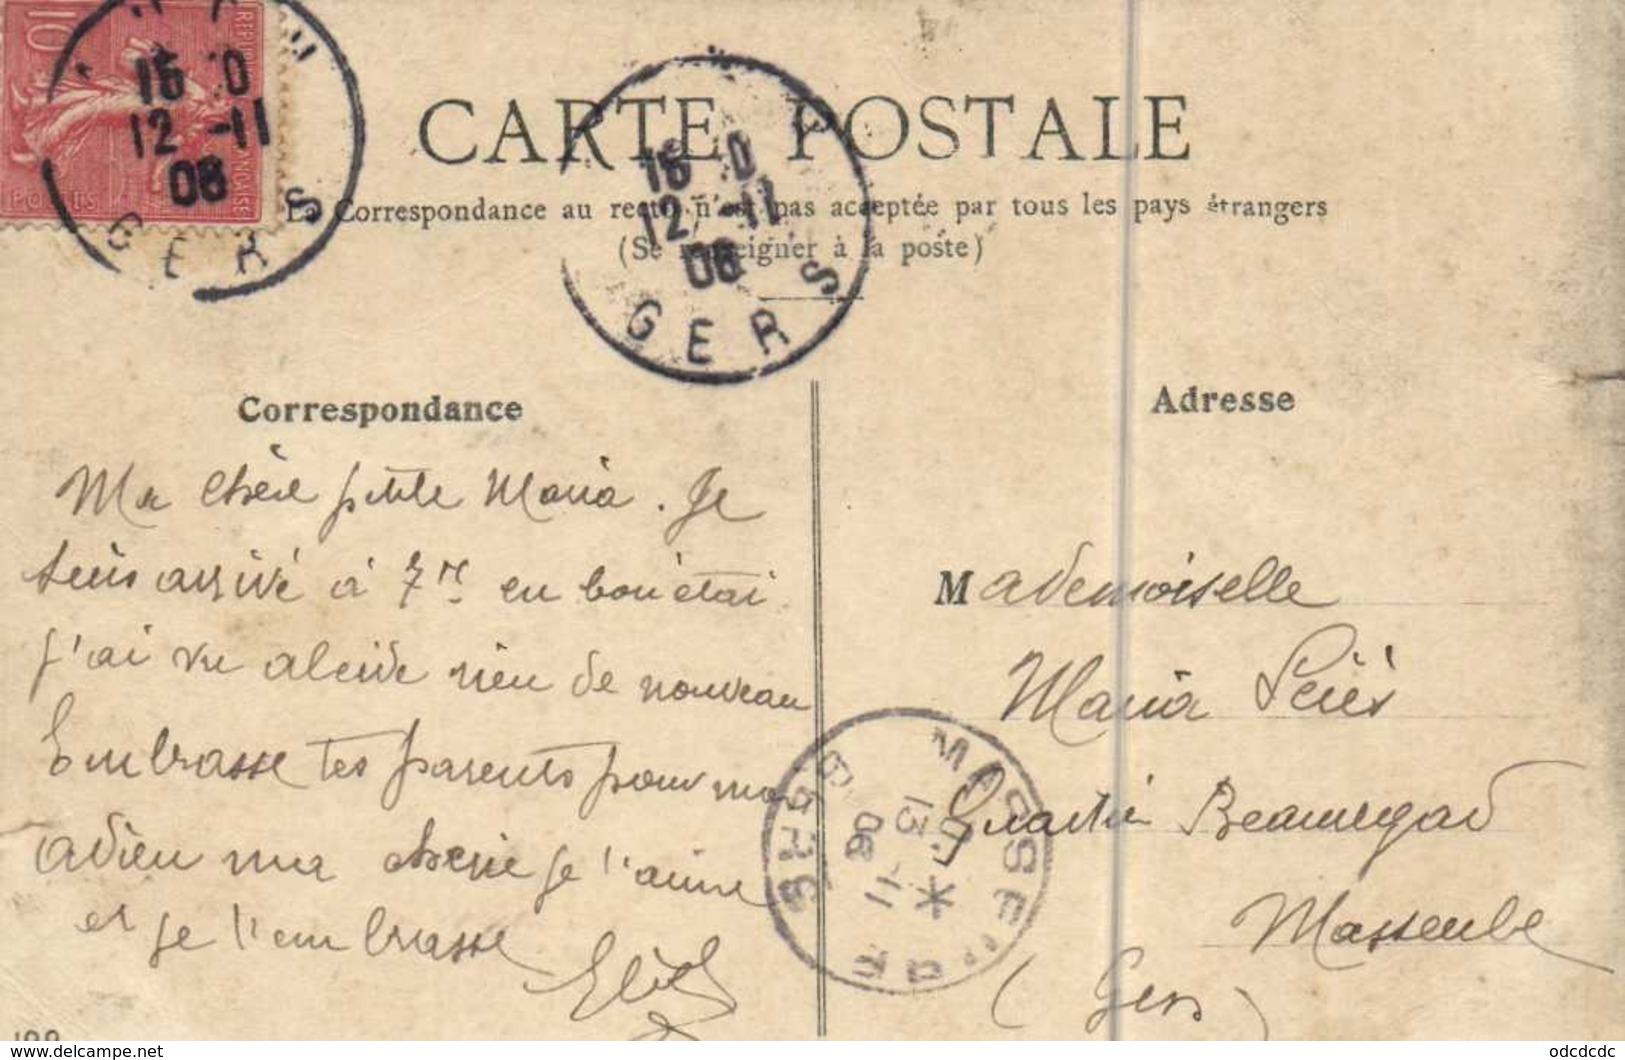 10
POSTES
16 0
12 -11
06
GERS
CARTE POSTALE
16 0
12 -11
06
GERS
La Correspondance au recto n'est pas acceptée par tous les pays étrangers
(Se renseigner à la poste)
Correspondance
Ma chère petite Maria. Je
suis arrivé à 7 en bon état
j'ai vu alcide rien de nouveau
Embrasse tes parents pour moi
adieu ma cherie je t'aime
et je t'embrasse
Adresse
Mademoiselle
Maria
Quartier Beauregard
Masseube
(Gers)
MASSEUBE
13 -11
06
GERS
odcdcdc